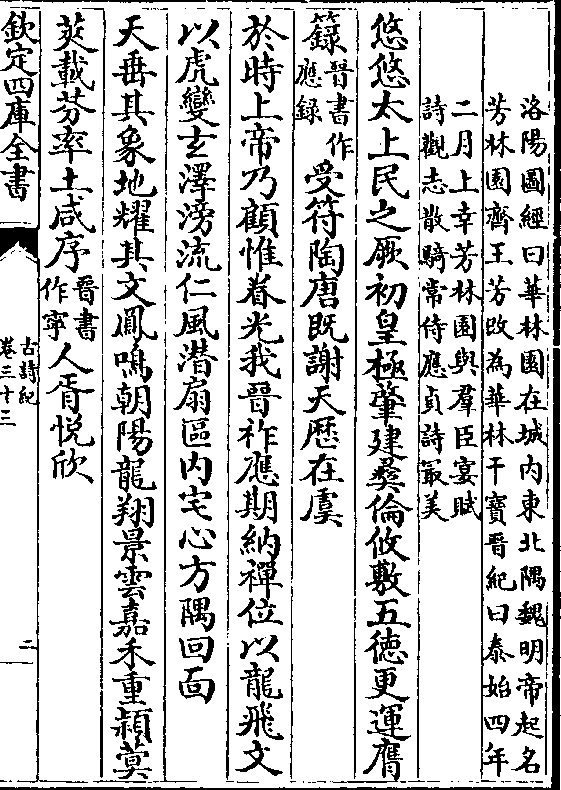 洛陽圖經曰華林園在城内東北隅魏明帝起名
芳林園齊王芳改為華林干寶晉紀曰泰始四年
二月上幸芳林園與羣臣宴賦
詩觀志散騎常侍應貞詩最美
悠悠太上民之厥初皇極肇建彝倫攸敷五徳更運膺
籙晉書作應録受符陶唐既謝天歴在虞
於時上帝乃顧惟眷光我晉祚應期納禪位以龍飛文
以虎變玄澤滂流仁風潛扇區内宅心方隅回面
天垂其象地耀其文鳳鳴朝陽龍翔景雲嘉禾重穎蓂
莢載芬率土咸序晉書作寧人胥悦欣
欽定四庫全書
古詩紀
卷三十三
二